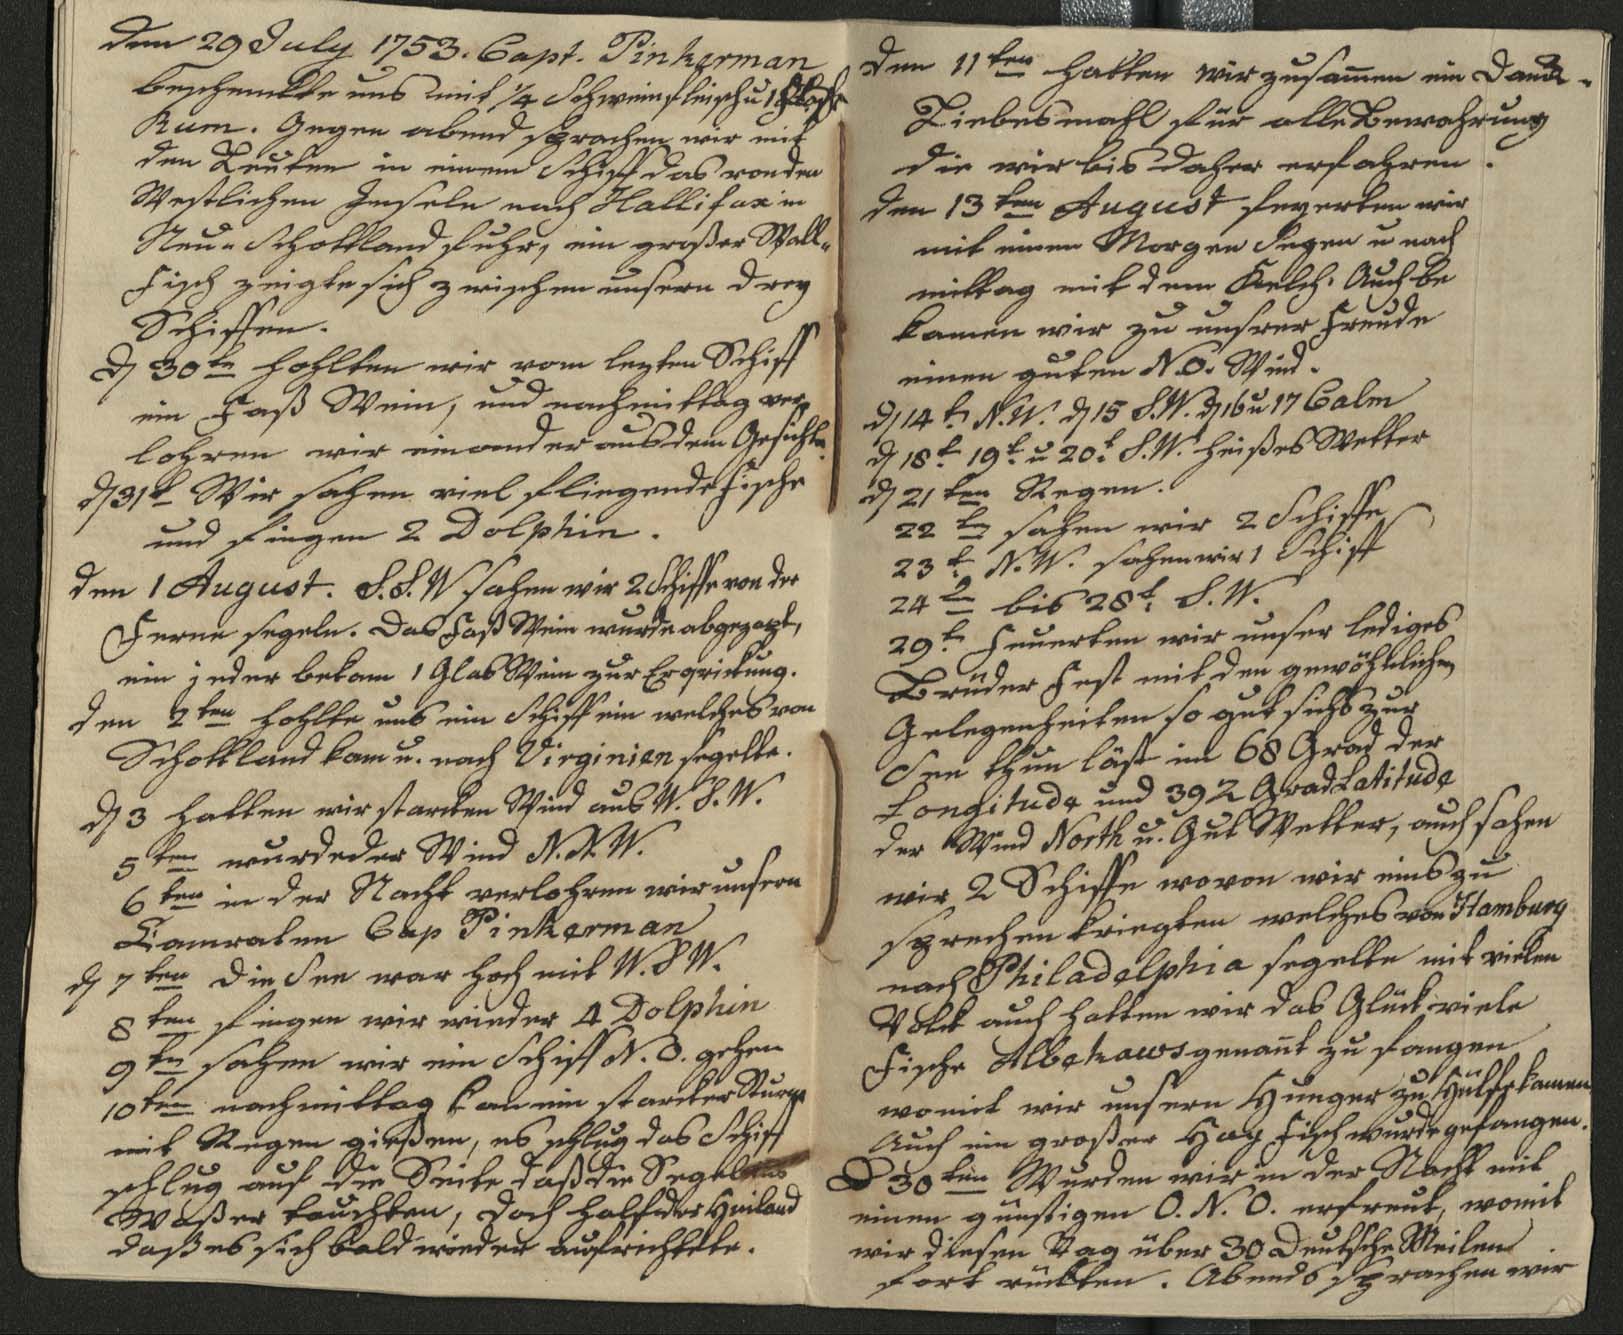 Den 29 July 1753. Capt. Pinkerman
beschenckte uns mit ¼ Schweinfleisch u 1
Rum. Gegen abend sprachen wir mit
den Leuten in einem Schiff das von den
Westlichen Inseln nach Hallifax in
Neu-Schottland fuhr, ein großer Wall-
Fisch zeigte sich zwischen unsern drey
Schiffen.
d 30te hohlten wir vom lezten Schiff
ein Faß Wein, und nachmittag ver
lohren wir einander aus dem Gesichte.
d 31t Wir sahen viel fliegende Fische
und fingen 2 Dolphin.
den 1 August. S.S.W sahen wir 2 Schiffe von der
Ferne segeln. Das Faß Wein wurde abgezapt,
ein jeder bekam 1 Glas Wein zur Erqvickung.
den 2ten hohlte uns ein Schiff ein welches von
Schottland kam u. nach Virginien segelte.
d 3 hatten wir starcken Wind aus W.S.W.
5ten wurde der Wind N.N.W.
6ten in der Nacht verlohren wir unsern
Camraten Cap Pinkerman
d 7ten die See war hoch mit W.S.W.
8ten fingen wir wieder 4 Dolphin
9tn sahen wir ein Schiff N.O. gehen
10ten nachmittag kam ein starcker Sturm
mit Regen gießen, es schlug das Schiff
schlug auf die Seite daß die Segel ins
Waßer tauchten, doch halff der Heiland
daß es sich bald wieder aufrichtete.
Den 11ten hatten wir zusam̄en ein Danck-
Liebesmahl für alle Bewahrung
die wir bis daher erfahren.
den 13ten August feyerten wir
mit einen Morgen Segen u nach
mittag mit dem Kelch. Auch be
kamen wir zu unsrer Freude
einen guten N.O. Wind.
d 14t. N.W. d 15 S.W. d 16 u 17 Calm
d 18t. 19t. u 20t. S.W. heißes Wetter
d 21ten Regen.
22tn sahen wir 2 Schiffe
23t. N.W. sahen wir 1 Schiff
24tn bis 28t. S.W.
29t. Feuerten wir unser lediges
Brüder Fest mit den gewöhnlichen
Gelegenheiten so gut sichs zur
See thun läst im 68 Grad der
Longitude und 392 Grad Latitude
der Wind North u. Gut Wetter, auch sahen
wir 2 Schiffe wovon wir eins zu
sprechen kriegten welches von Hamburg
nach Philadelphia segelte mit vielen
Volck auch hatten wir das Glück viele
Fische Albekaws genan̄t zu fangen
womit wir unsern Hunger zu Hülffe kamen.
Auch ein großer Hay Fisch wurde gefangen.
D 30ten Wurden wir in der Nacht mit
einen günstigen O.N.O. erfreut, womit
wir diesen Tag über 30 Deutsche Meilen
fort rückten. Abends sprachen wir